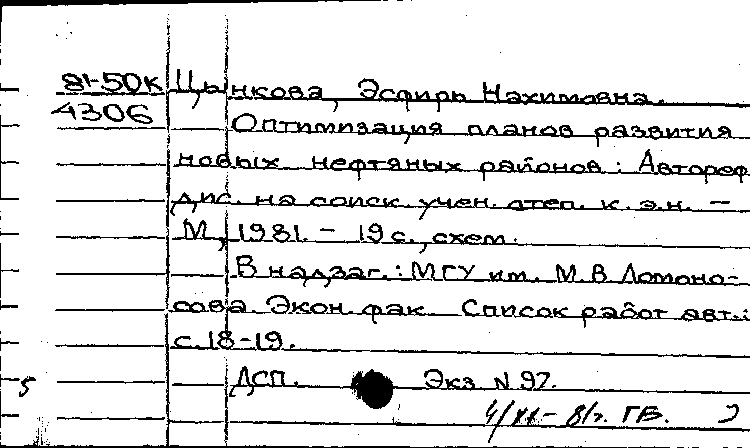 81-50К Цынкова, Эсфирь Нахимовна.
4306 Оптимизация планов развития
новых нефтяных районов: Автореф
дис. на соиск. учен. степ. к. э.н. –
М, 1981. – 19 с., схем.
В надзаг.: МГУ им. М.В Ломоно-
сова. Экон. фак. Список работ авт.:
с. 18-19.
5 ДСП. Экз N 97.
81г. ГВ.